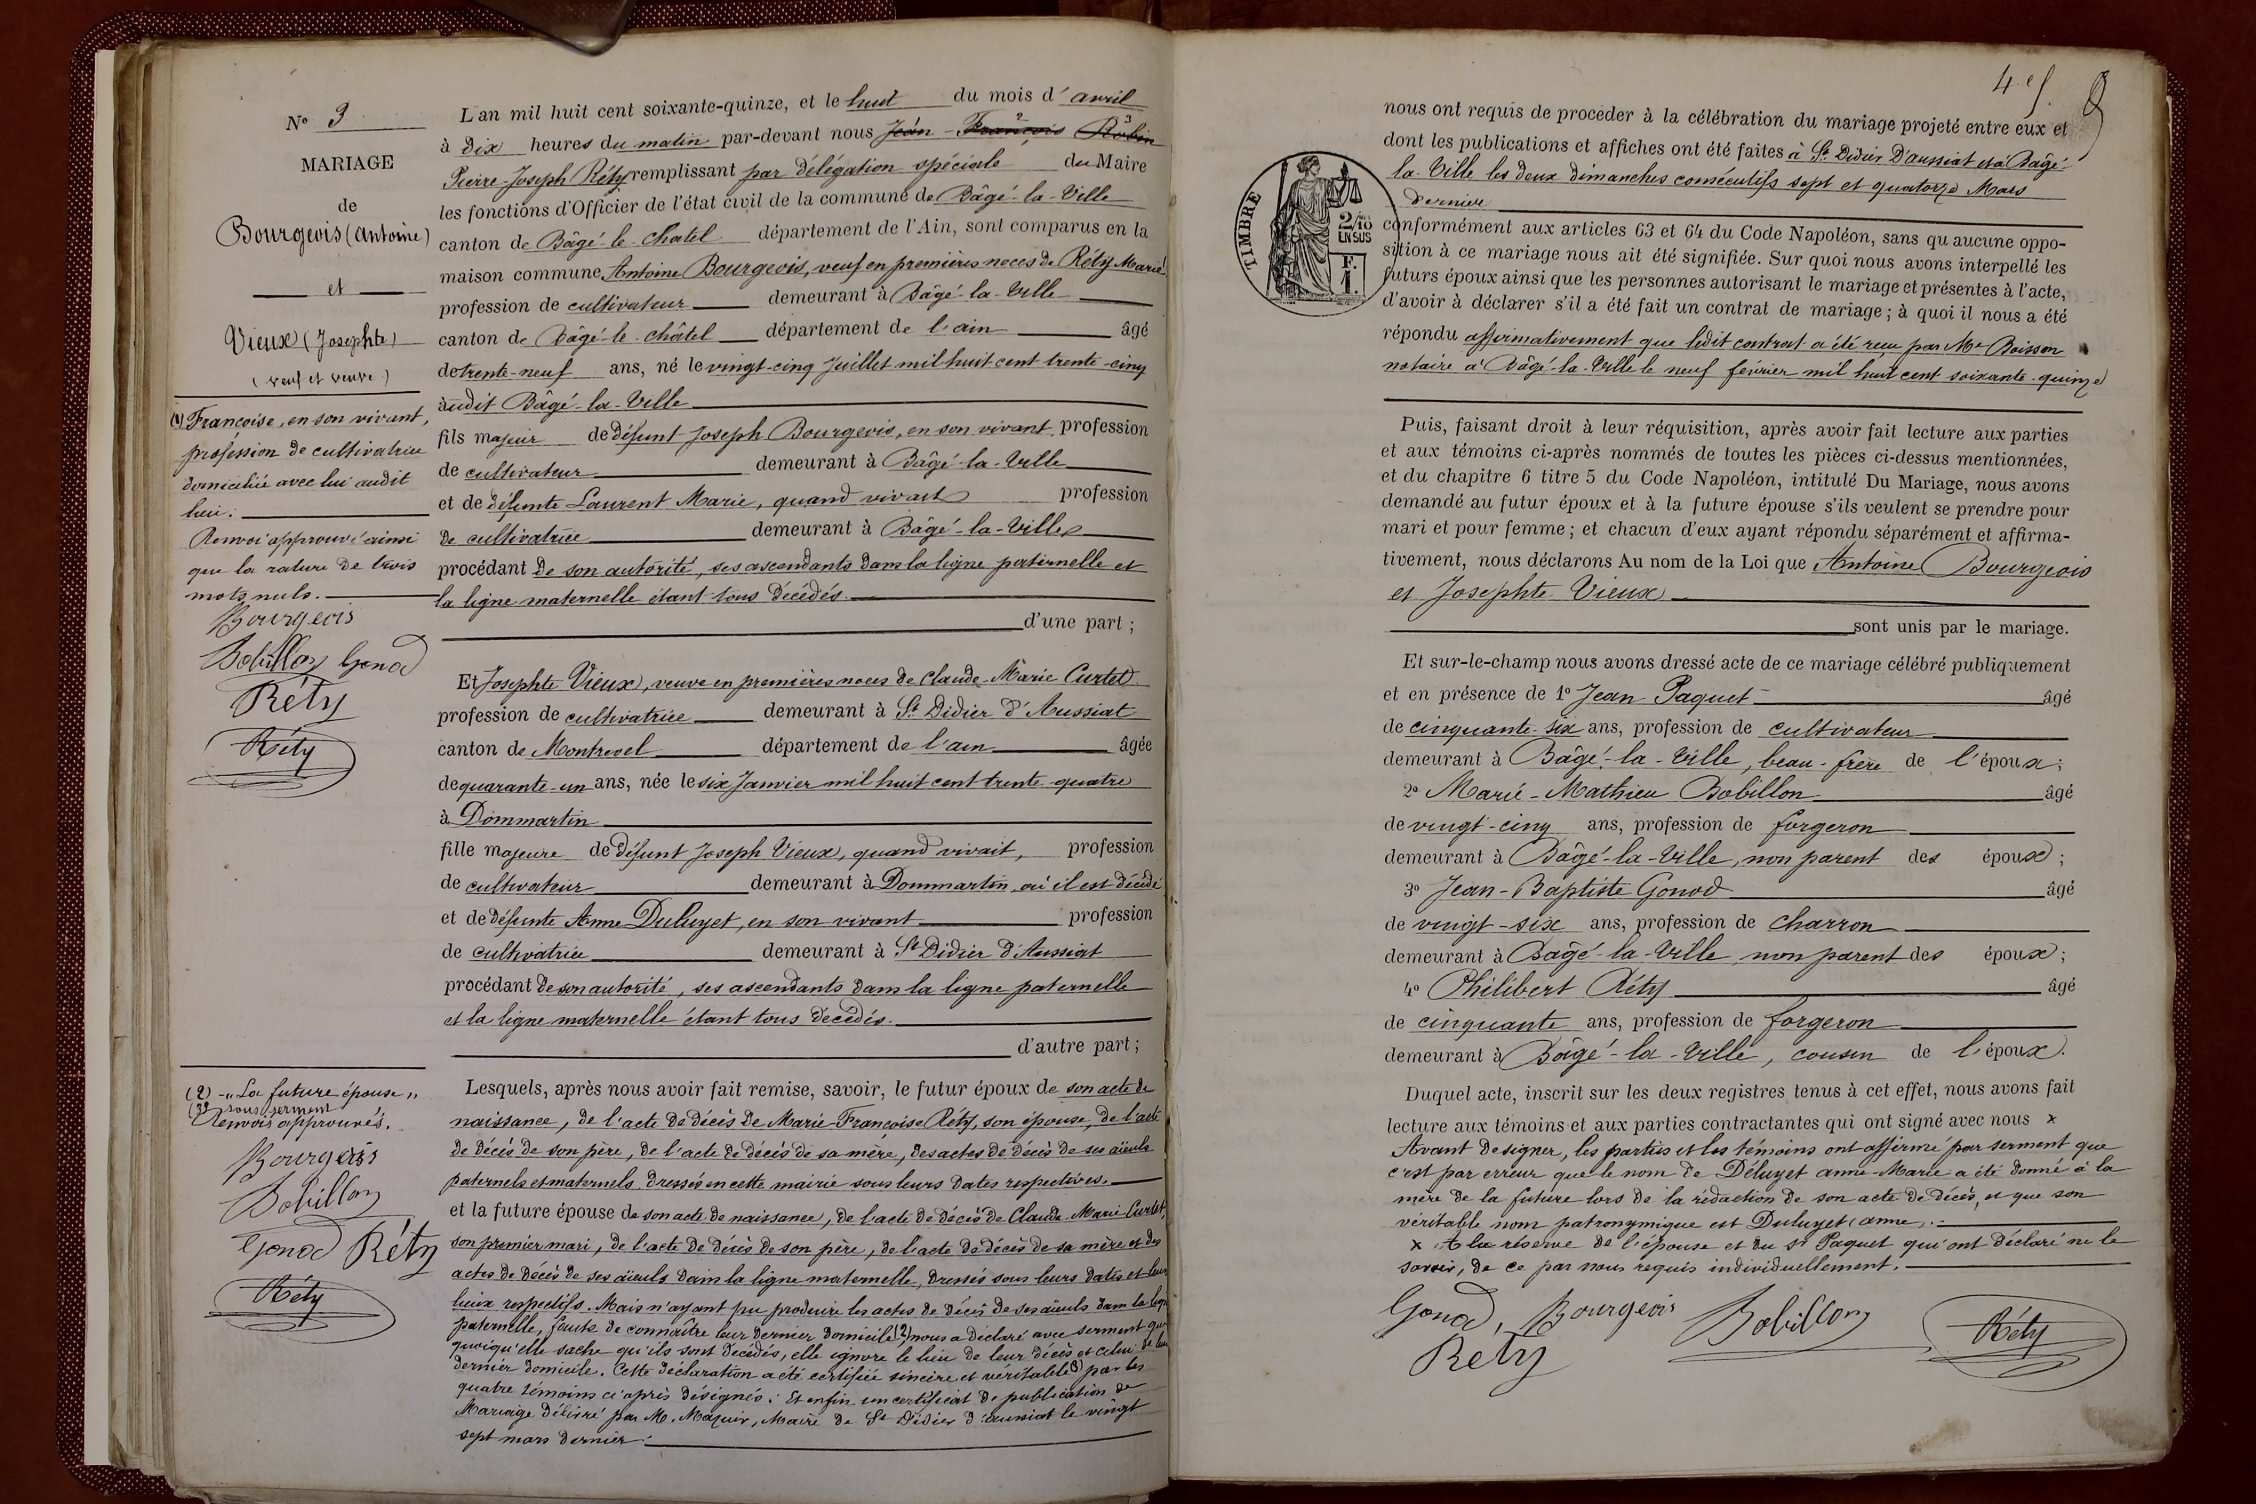 N° 3
MARIAGE
de
Bourgeois (Antoine)
et
Vieux (Josephte)
(veuf et veuve)
(1) Françoise, en son vivant,
profession de cultivatrice
domiciliée avec lui audit
lieu.
Renvoi approuvé ainsi
que la rature de trois
mots nuls.
Bourgeois
Bobillon Gonod
Réty
Réty
(2) - "La future épouse"
(3) sous serment
Renvois approuvés.
Bourgeois
Bobillon
Gonod Réty
Réty
L'an mil huit cent soixante-quinze, et le huit du mois d'avril
à dix heures du matin par-devant nous Jean-François Robin
Pierre-Joseph Réty remplissant par délégation spéciale du Maire
les fonctions d'Officier de l'état civil de la commune de Bâgé-la-Ville
canton de Bâgé-le-Chatel département de l'Ain, sont comparus en la
maison commune, Antoine Bourgeois, veuf en premières noces de Réty Marie
profession de cultivateur demeurant à Bâgé-la-Ville
canton de Bâgé-le-châtel département de l'ain âgé
de trente-neuf ans, né le vingt-cinq Juillet mil huit cent trente-cinq
audit Bâgé-la-Ville
fils majeur de défunt Joseph Bourgeois, en son vivant, profession
de cultivateur demeurant à Bâgé-la-Ville
et de défunte Laurent Marie, quand vivait profession
de cultivatrice demeurant à Bâgé-la-Ville
procédant de son autorité, ses ascendants dans la ligne paternelle et
la ligne maternelle étant tous décédés.
d'une part ;
Et Josephte Vieux, veuve en premières noces de Claude-Marie Curtet
profession de cultivatrice demeurant à St Didier d'Aussiat
canton de Montrevel département de l'ain âgée
de quarante-un ans, née le six Janvier mil huit cent trente-quatre
à Dommartin
fille majeure de défunt Joseph Vieux, quand vivait, profession
de cultivateur demeurant à Dommartin où il est décédé
et de défunte Anne Duluyet, en son vivant profession
de cultivatrice demeurant à St Didier d'Aussiat
procédant de son autorité, ses ascendants dans la ligne paternelle
et la ligne maternelle étant tous décédés.
d'autre part ;
Lesquels, après nous avoir fait remise, savoir, le futur époux de son acte de
naissance, de l'acte de décès de Marie-Françoise Réty, son épouse, de l'acte
de décès de son père, de l'acte de décès de sa mère, des actes de décès de ses aïeuls
paternels et maternels dressés en cette mairie sous leurs dates respectives.
et la future épouse de son acte de naissance, de l'acte de décès de Claude-Marie Curtet,
son premier mari, de l'acte de décès de son père, de l'acte de décès de sa mère et des
actes de décès de ses aïeuls dans la ligne maternelle, dressés sous leurs dates et leurs
lieux respectifs. Mais n'ayant pu produire les actes de décès de ses aïeuls dans la ligne
paternelle, faute de connaître leur dernier domicile (2) nous a déclaré avec serment que
quoiqu'elle sache qu'ils sont décédés, elle ignore le lieu de leur décès et celui de leur
dernier domicile. Cette déclaration a été certifiée sincère et véritable (3) par les
quatre témoins ci-après désignés. Et enfin un certificat de publication de
Mariage délivré par M. Mazuir, Maire de St Didier d'aussiat le vingt
sept mars dernier.
4 ef.
TIMBRE
2/10
EN SUS
F.
1.
nous ont requis de procéder à la célébration du mariage projeté entre eux et
dont les publications et affiches ont été faites à St Didier D'aussiat et à Bâgé-
la-Ville les deux dimanches consécutifs sept et quatorze Mars
dernier
conformément aux articles 63 et 64 du Code Napoléon, sans qu'aucune oppo-
sition à ce mariage nous ait été signifiée. Sur quoi nous avons interpellé les
futurs époux ainsi que les personnes autorisant le mariage et présentes à l'acte,
d'avoir à déclarer s'il a été fait un contrat de mariage ; à quoi il nous a été
répondu affirmativement que ledit contrat a été reçu par Me Boisson
notaire à Bâgé-la-Ville le neuf février mil huit cent soixante-quinze
Puis, faisant droit à leur réquisition, après avoir fait lecture aux parties
et aux témoins ci-après nommés de toutes les pièces ci-dessus mentionnées,
et du chapitre 6 titre 5 du Code Napoléon, intitulé Du Mariage, nous avons
demandé au futur époux et à la future épouse s'ils veulent se prendre pour
mari et pour femme ; et chacun d'eux ayant répondu séparément et affirma-
tivement, nous déclarons Au nom de la Loi que Antoine Bourgeois
et Josephte Vieux
sont unis par le mariage.
Et sur-le-champ nous avons dressé acte de ce mariage célébré publiquement
et en présence de 1° Jean Paquet âgé
de cinquante-six ans, profession de cultivateur
demeurant à Bâgé-la-Ville, beau-frère de l'époux ;
2° Marie-Mathieu Bobillon âgé
de vingt-cinq ans, profession de forgeron
demeurant à Bâgé-la-Ville, non parent des époux ;
3° Jean-Baptiste Gonod âgé
de vingt-six ans, profession de charron
demeurant à Bâgé-la-Ville, non parent des époux ;
4° Philibert Réty âgé
de cinquante ans, profession de forgeron
demeurant à Bâgé-la-Ville, cousin de l'époux.
Duquel acte, inscrit sur les deux registres tenus à cet effet, nous avons fait
lecture aux témoins et aux parties contractantes qui ont signé avec nous x
Avant de signer, les parties et les témoins ont affirmé par serment que
c'est par erreur que le nom de Déluyet anne-Marie a été donné à la
mère de la future lors de la rédaction de son acte de décès, et que son
véritable nom patronymique est Duluyet (anne).
x A la réserve de l'épouse et du Sr Paquet qui ont déclaré ne le
savoir, de ce par nous requis individuellement.
Gonod, Bourgeois Bobillon Réty
Réty